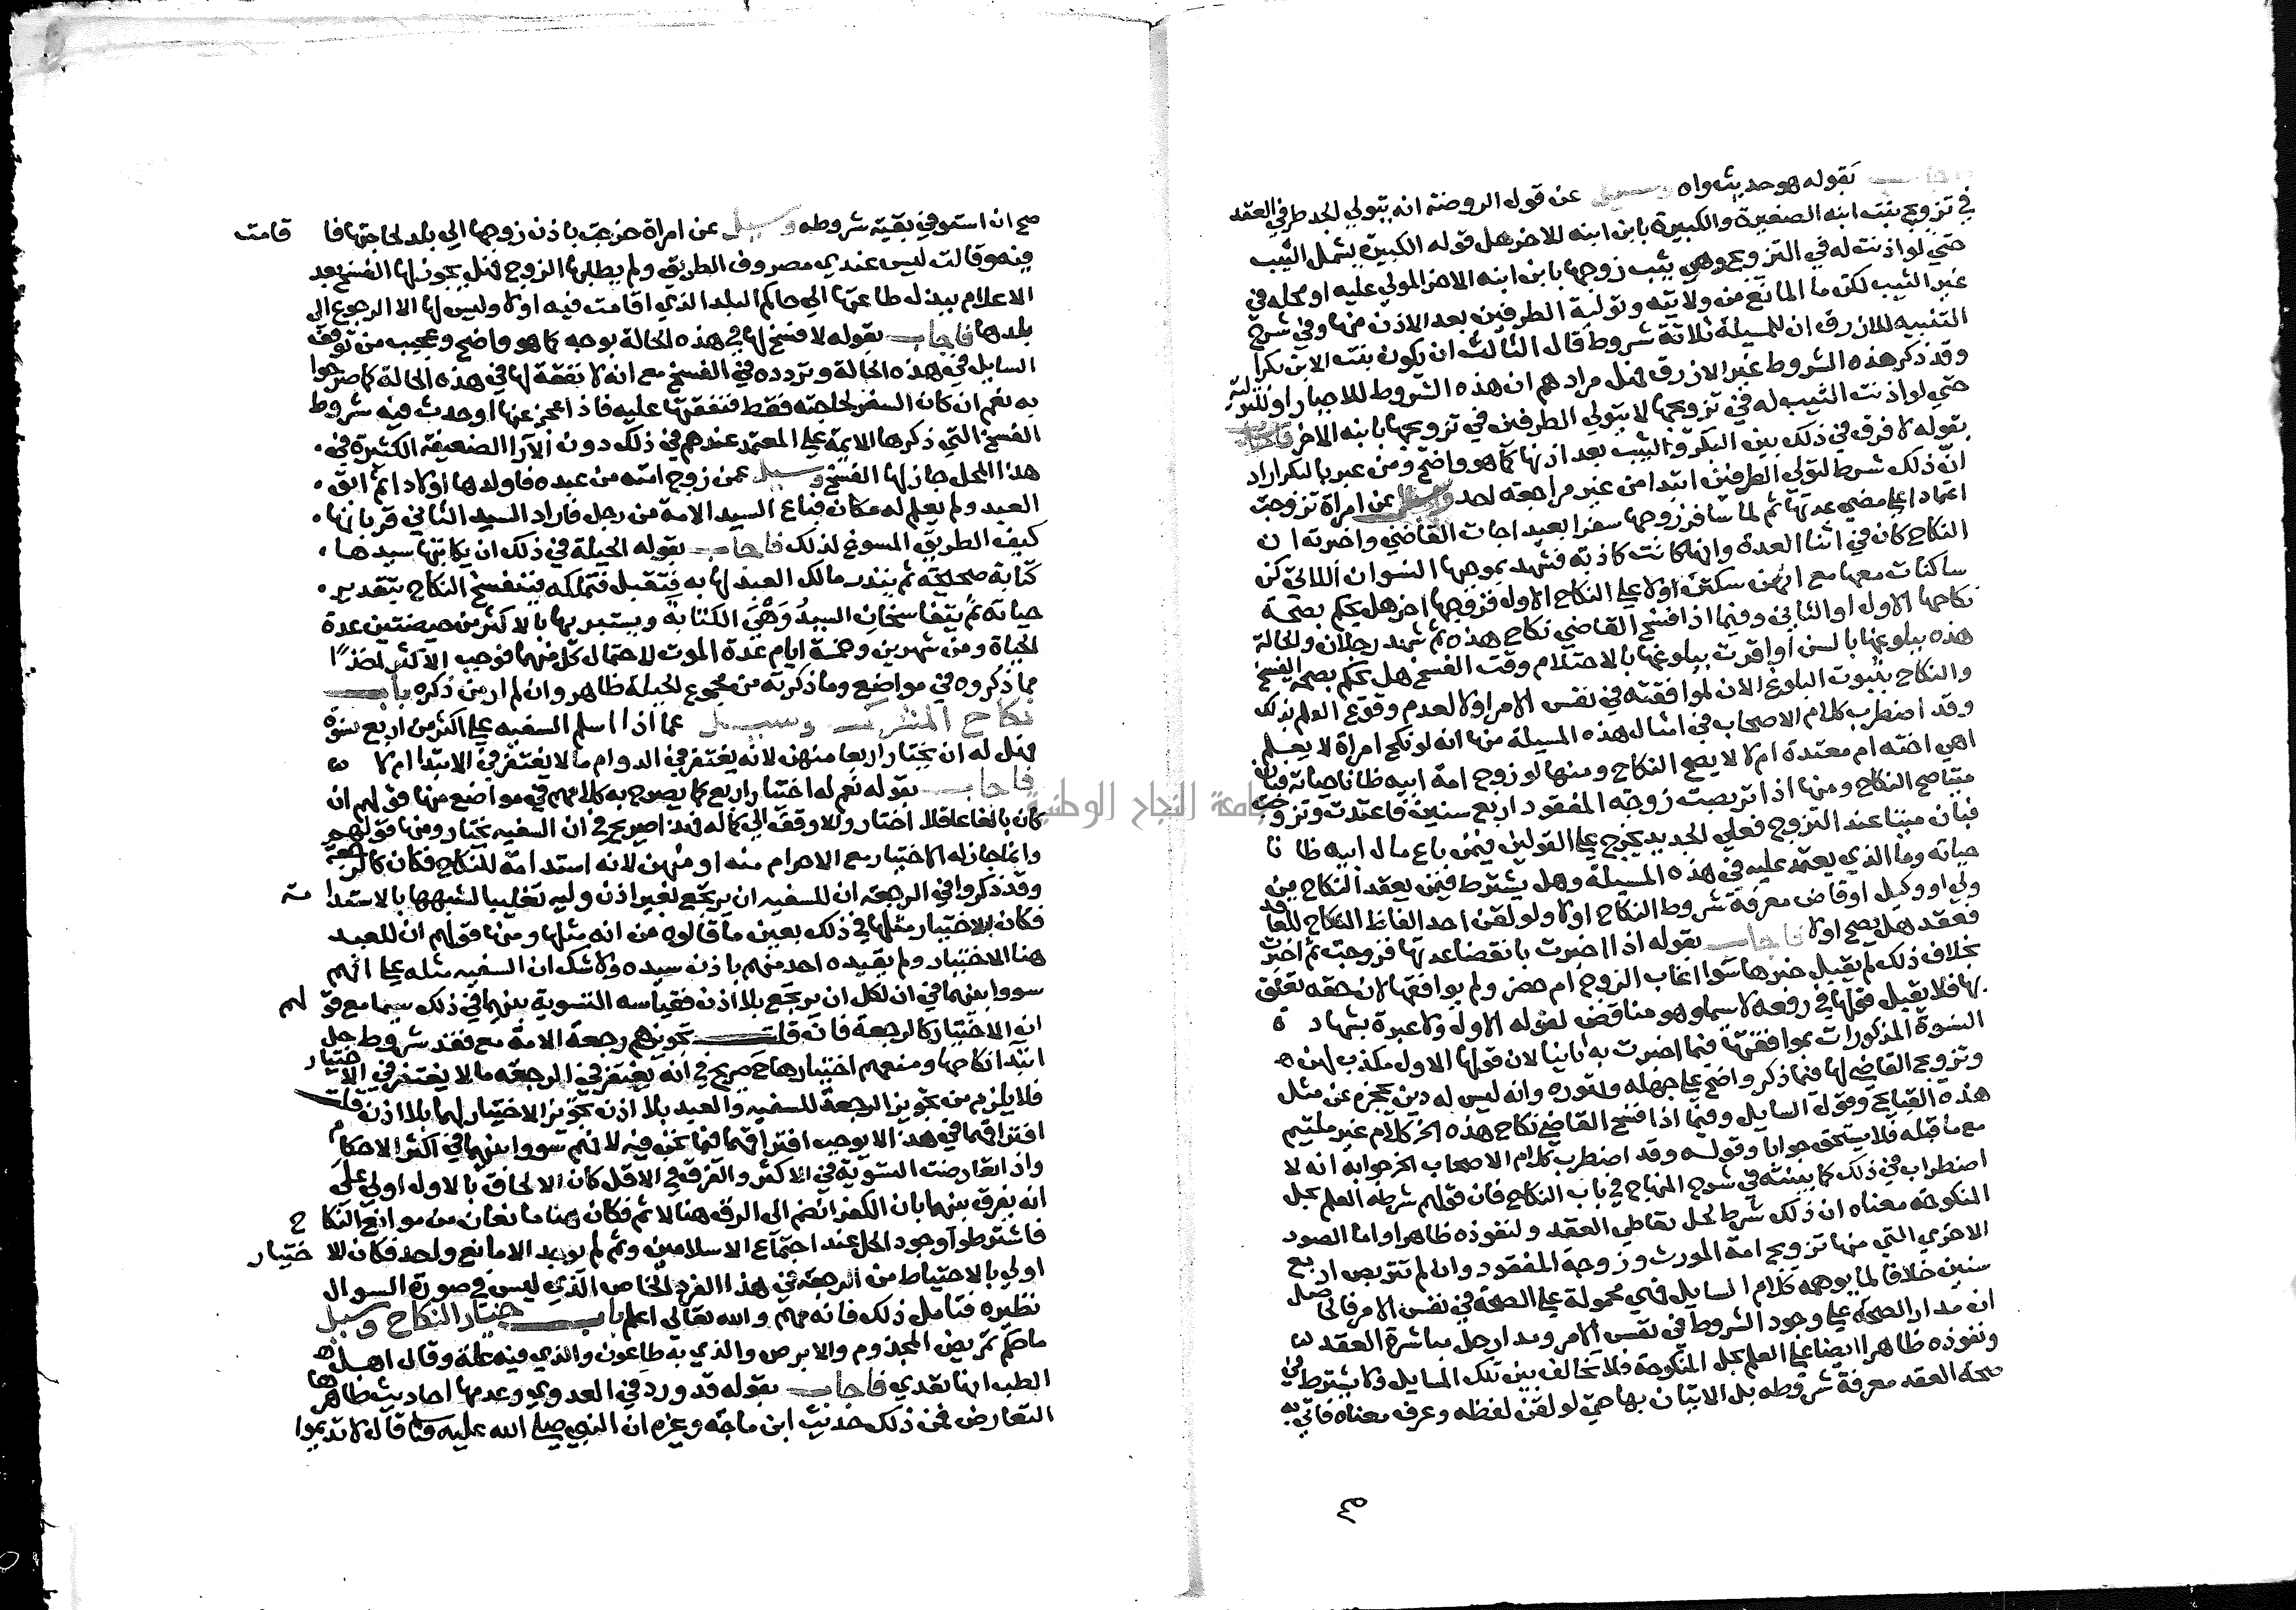 فاجاب بقوله هو حديث واه وسيل عن قول الروضة انه يتولي الجد طرفي العقد
في تزويج بنت ابنه الصغيرة والكبيرة بابن ابنه الاخر هل قوله الكبيرة يشمل الثيب
حتي لو اذنت له في التزويج وهي ثيب زوجها بابن ابنه الاخر المولي عليه او محله في
غير الثيب لكن ما المانع من ولايته وتولية الطرفين بعد الاذن منها وفي شرح
التنبيه للازرق ان للمسيلة ثلاثة شروط قال الثالث ان يكون بنت الابن بكرا
وقد ذكر هذه الشروط غير الازرق فهل مرادهم ان هذه الشروط للاجبار او للتولية
حتي لو اذنت الثيب له في تزويجها لا يتولي الطرفين في تزويجها بابنه الاخر فاجاب
بقوله لا فرق في ذلك بين البكر والثيب بعد اذنها كما هو واضح ومن عبر بالبكر اراد
ان ذلك شرط لتولي الطرفين ابتدا من غير مراجعة لحد وسيل عن امراة تزوجت
اعتمادا علي مضي عدتها ثم لما سافر زوجها سفرا بعيد اجات القاضي واخبرته ان
النكاح كان في اثنا العدة وانها كانت كاذبة فشهد بموجبها النسوان اللاتي كن
ساكنات معها مع انهن سكتن اولا علي النكاح الاول فزوجها اخر هل يحكم بصحة
نكاحها الاول او الثاني وفيما اذا فسخ القاضي نكاح هذه ثم شهد رجلان والحالة
هذه ببلوغها بالسن او اقرت ببلوغها بالاحتلام وقت الفسخ هل نحكم بصحة الفسخ
والنكاح بثبوت البلوغ الان لموافقته في نفس الامر اولا لعدم وقوع العلم بذلك
وقد اضطرب كلام الاصحاب في امثال هذه المسيلة منها انه لو نكح امراة لا يعلم
اهي اخته ام معتدة ام لا لا يصح النكاح ومنها لو زوج امة ابيه ظانا حياته فبان
ميتا صح النكاح ومنها اذا تربصت زوجة المفقود اربع سنين فاعتدت وتزوجت
فبان ميتا عند التزوج فعلي الجديد يخرج علي القولين فيمن باع مال ابيه ظانا
حياته وما الذي يعتمد عليه في هذه المسيلة وهل يشترط فيمن يعقد النكاح من
ولي او وكيل او قاض معرفة شروط النكاح اولا ولو لقن احد الفاظ النكاح للعاقد
فعقد هل يصح اولا فاجاب بقوله اذا اخبرت بانقضا عدتها فزوجت ثم اخبرت
بخلاف ذلك لم يقبل خبرها سوا اغاب الزوج ام حضر ولم يوافقها لان حقه تعلق
بها فلا يقبل قولها في رفعه لا سيما وهو مناقض لقوله الاول ولا عبرة بشهادة
النسوة المذكورات بموافقتها فيما اخبرت به ثانيا لان قولها الاول مكذب لهن
وتزويج القاضي لها فيما ذكر واضح علي جهله وتهوره وانه ليس له دين يحجزه عن مثل
هذه القبايح وقول السايل وفيما اذا فسخ القاضي نكاح هذه الخ كلام غير ملتيم
مع ما قبله فلا يستحق جوابا وقوله وقد اضطرب كلام الاصحاب الخ جوابه انه لا
اضطراب في ذلك كما بينته في شرح المنهاج في باب النكاح فان قولهم شرطه العلم بحل
المنكوحة معناه ان ذلك شرط لحل تعاطي العقد ولنفوذه ظاهرا واما الصور
الاخري التي منها تزويج امة المورث وزوجة المفقود وان لم تتربص اربع
سنين خلافا لما يوهمه كلام السايل فهي محمولة علي الصحة في نفس الامر فالحاصل
ان مدار الصحة علي وجود الشروط في نفس الامر ومدار حل مباشرة العقد
ونفوذه ظاهرا ايضا علي العلم بحل المنكوحة فلا تخالف بين تلك المسايل ولا يشترط في
صحة العقد معرفة شروطه بل الاتيان بها حتي لو لقن لفظه وعرف معناه فاتي به
صح ان استوفي بقية شروطه وسيل عن امراة خرجت باذن زوجها الي بلد لحاجتها فاقامت
فيه وقالت ليس عندي مصروف الطريق ولم يطلبها الزوج فهل يجوز لها الفسخ بعد
الاعلام ببذله طاعتها الي حاكم البلد الذي اقامت فيه اولا وليس لها الا الرجوع الي
بلدها فاجاب بقوله لا فسخ لها في هذه الحالة بوجه كما هو واضح وعجيب من توقف
السايل في هذه الحالة وتردده في الفسخ مع انه لا نفقة لها في هذه الحالة كما صرحوا
به نعم ان كان السفر لحاجته فقط فنفقتها عليه فاذا عجز عنها او حدث فيه شروط
الفسخ التي ذكرها الايمة علي المعتمد عندهم في ذلك دون الارا الضعيفة الكثيرة في
هذا المحل جاز لها الفسخ وسيل عمن زوج امته من عبده فاولدها اولادا ثم ابق
العبد ولم يعلم له مكان فباع السيد الامة من رجل فاراد السيد الثاني قربانها
كيف الطريق المسوغ لذلك فاجاب بقوله الحيلة في ذلك ان يكاتبها سيدها
كتابة صحيحة ثم ينذر مالك العبد لها به فتقبل فتملكه فينفسخ النكاح بتقدير
حياته ثم يتفاسخان السيد وهي الكتابة ويستبريها بالاكثر من حيضتين عدة
الحياة ومن شهرين وخمسة ايام عدة الموت لاحتمال كل منهما فوجب الاكثر اخذا
مما ذكروه في مواضع وما ذكرته من مجموع الحيلة ظاهر وان لم ار من ذكره باب
نكاح المشرك وسيل عما اذا اسلم السفيه علي اكثر من اربع نسوة
فهل له ان يختار اربعا منهن لانه يغتفر في الدوام ما لا يغتفر في الابتدا ام لا
فاجاب بقوله نعم له اختيار اربع كما يصرح به كلامهم في مواضع منها قولهم ان
كان بالغا عاقلا اختار والا وقف الي كماله فهذا صريح في ان السفيه يختار ومنها قولهم
وانما جاز له الاختيار مع الاحرام منه او منهن لانه استدامة للنكاح فكان كالرجعة
وقد ذكروا في الرجعة ان للسفيه ان يرتجع بغير اذن وليه تغليبا لشبهها بالاستدامة
فكان الاختيار مثلها في ذلك بعين ما قالوه من انه مثلها ومنها قولهم ان للعبد
هنا الاختيار ولم يقيده احد منهم باذن سيده ولا شك ان السفيه مثله علي انهم
سووا بينهما في ان لكل ان يرتجع بلا اذن فقياسه التسوية بينهما في ذلك سيما مع قولهم
ان الاختيار كالرجعة فان قلت تجويزهم رجعة الامة مع فقد شروط حل
ابتدا نكاحها ومنعهم اختيارها صريح في انه يغتفر في الرجعة ما لا يغتفر في الاختيار
فلا يلزم من تجويز الرجعة للسفيه والعبد بلا اذن تجويز الاختيار لهما بلا اذن قلت
افتراقهما في هذا لا يوجب افتراقهما فيما نحن فيه لانهم سووا بينهما في اكثر الاحكام
واذا تعارضت التسوية في الاكثر والفرق في الاقل كان الالحاق بالاول اولي علي
انه يفرق بينهما بان الكفر انضم الي الرق هنا لا ثم فكان هنا مانعان من موانع النكاح
فاشترطوا وجود الحل عند اجتماع الاسلامين وثم لم يوجد الا مانع واحد فكان للاختيار
اولي بالاحتياط من الرجعة في هذا الفرد الخاص الذي ليس في صورة السوال
نظيره فتامل ذلك فانه مهم والله تعالي اعلم باب خيار النكاح وسيل
ما حكم تمريض المجذوم والابرص والذي به طاعون والذي فيه علة وقال اهل
الطب انها تعدي فاجاب بقوله قد ورد في العدوي وعدمها احاديث ظاهرها
التعارض فمن ذلك حديث ابن ماجة وغيره ان النبي صلي الله عليه وسلم قال لا تديموا
جامعة النجاح الوطنية